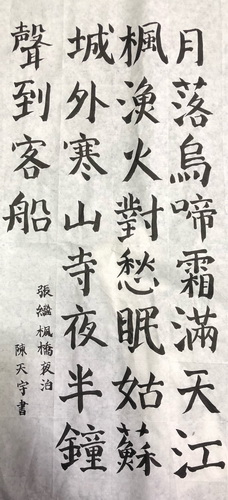 月落烏啼霜滿天江
楓漁火對愁眠姑蘇
城外寒山寺夜半鐘
聲到客船
張繼楓橋夜泊
陳天宇書